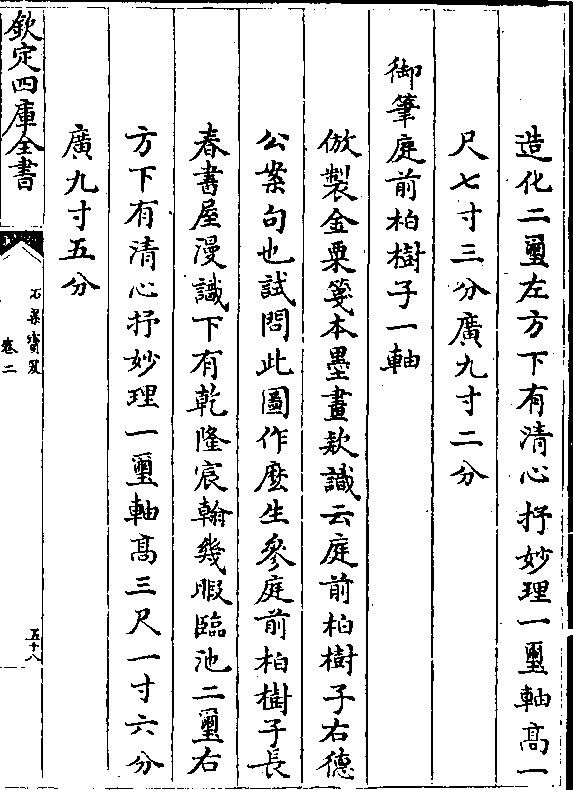 造化二璽左方下有清心抒妙理一璽軸髙一
尺七寸三分廣九寸二分
御筆庭前柏樹子一軸
倣製金粟箋本墨畫欵識云庭前柏樹子右德
公案句也試問此圖作麽生參庭前柏樹子長
春書屋漫識下有乾隆宸翰幾暇臨池二璽右
方下有清心抒妙理一璽軸髙三尺一寸六分
廣九寸五分
欽定四庫全書
石渠寳笈
卷二
五十八